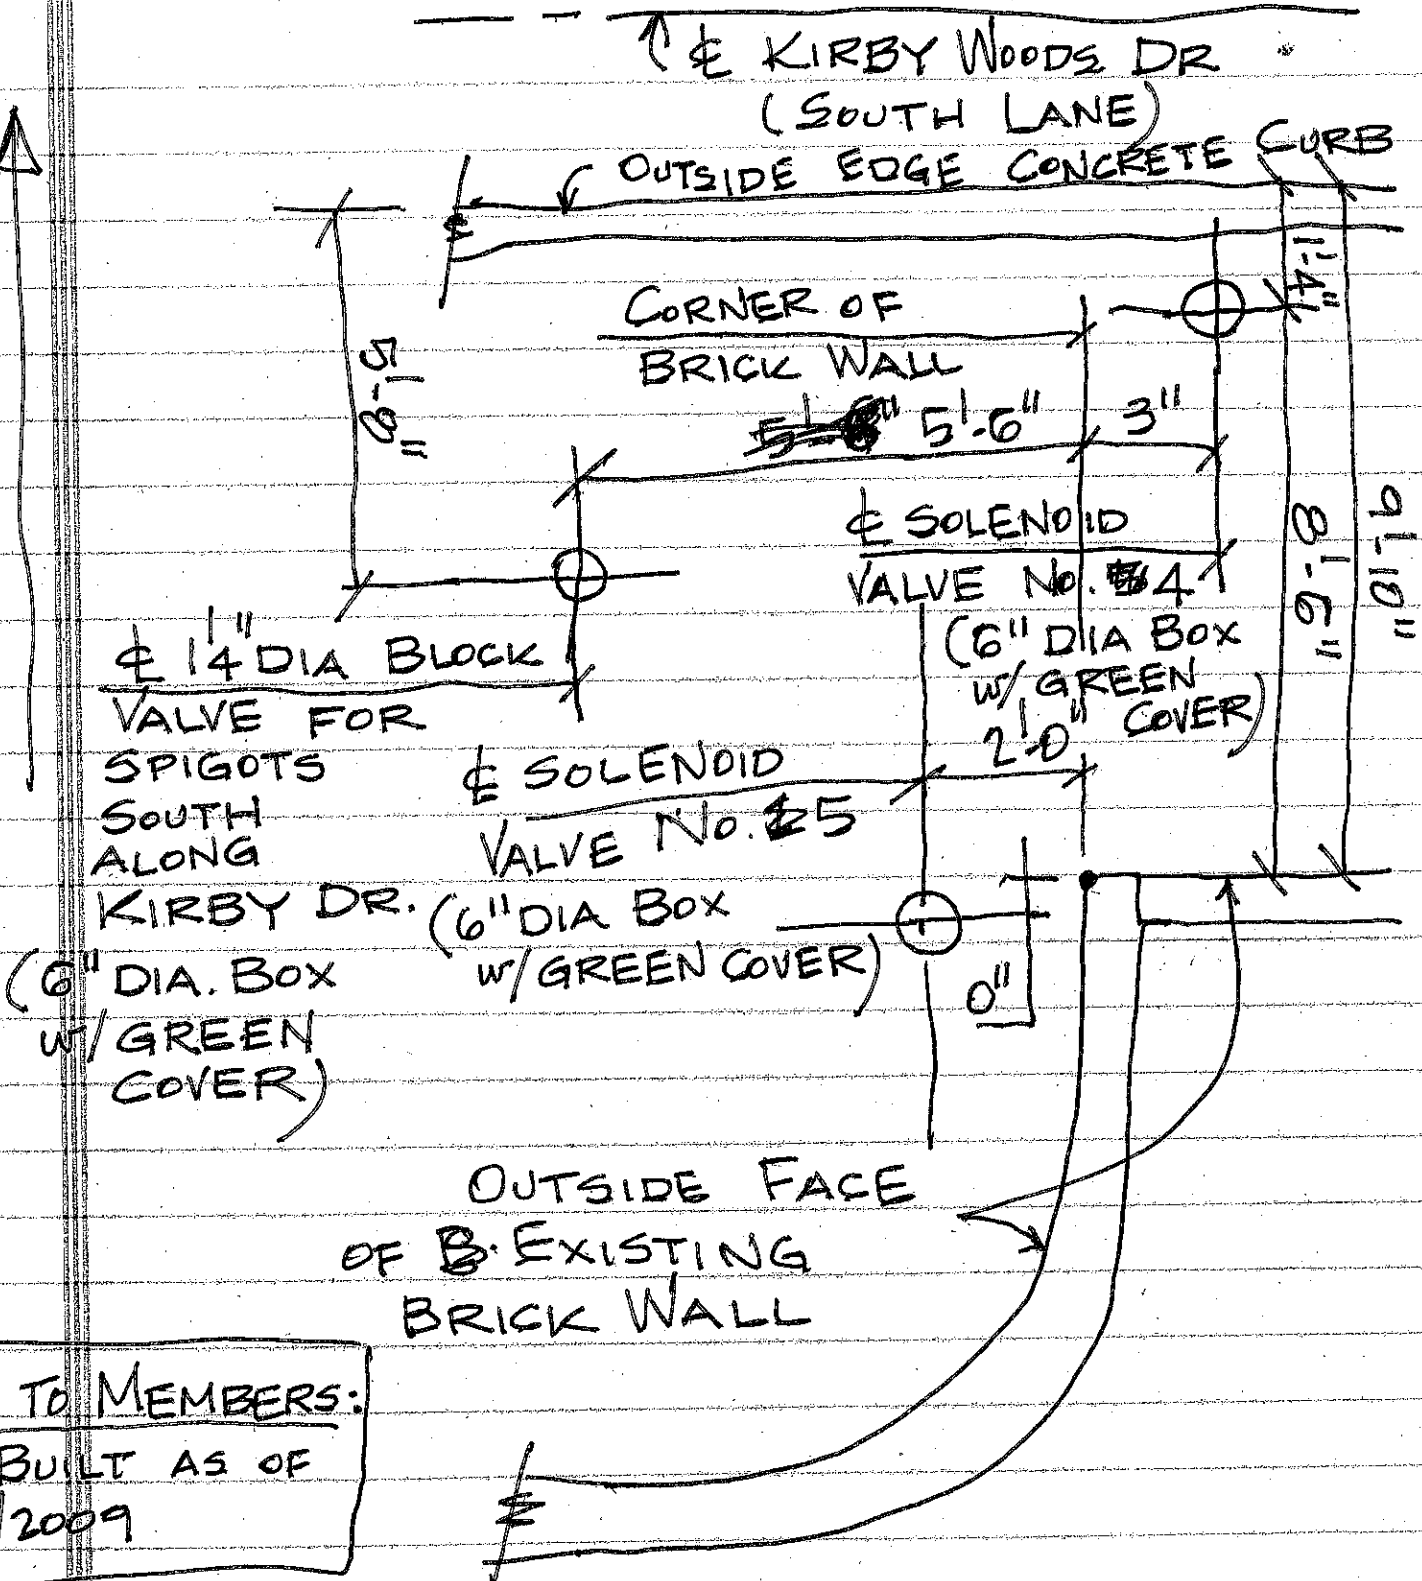 ℄ KIRBY WOODS DR
(SOUTH LANE)
OUTSIDE EDGE CONCRETE CURB
1'-4"
CORNER OF
BRICK WALL
5'-8"
5'-6" 3"
℄ SOLENOID
VALVE No. 4
(6" DIA BOX
w/ GREEN
COVER)
8'-6"
9'-10"
℄ 1¼" DIA BLOCK
VALVE FOR
SPIGOTS
SOUTH
ALONG
KIRBY DR.
(6" DIA. BOX
w/ GREEN
COVER)
2'-0"
℄ SOLENOID
VALVE No. 5
(6" DIA BOX
w/ GREEN COVER)
0"
OUTSIDE FACE
OF EXISTING
BRICK WALL
TO MEMBERS:
BUILT AS OF
/2009